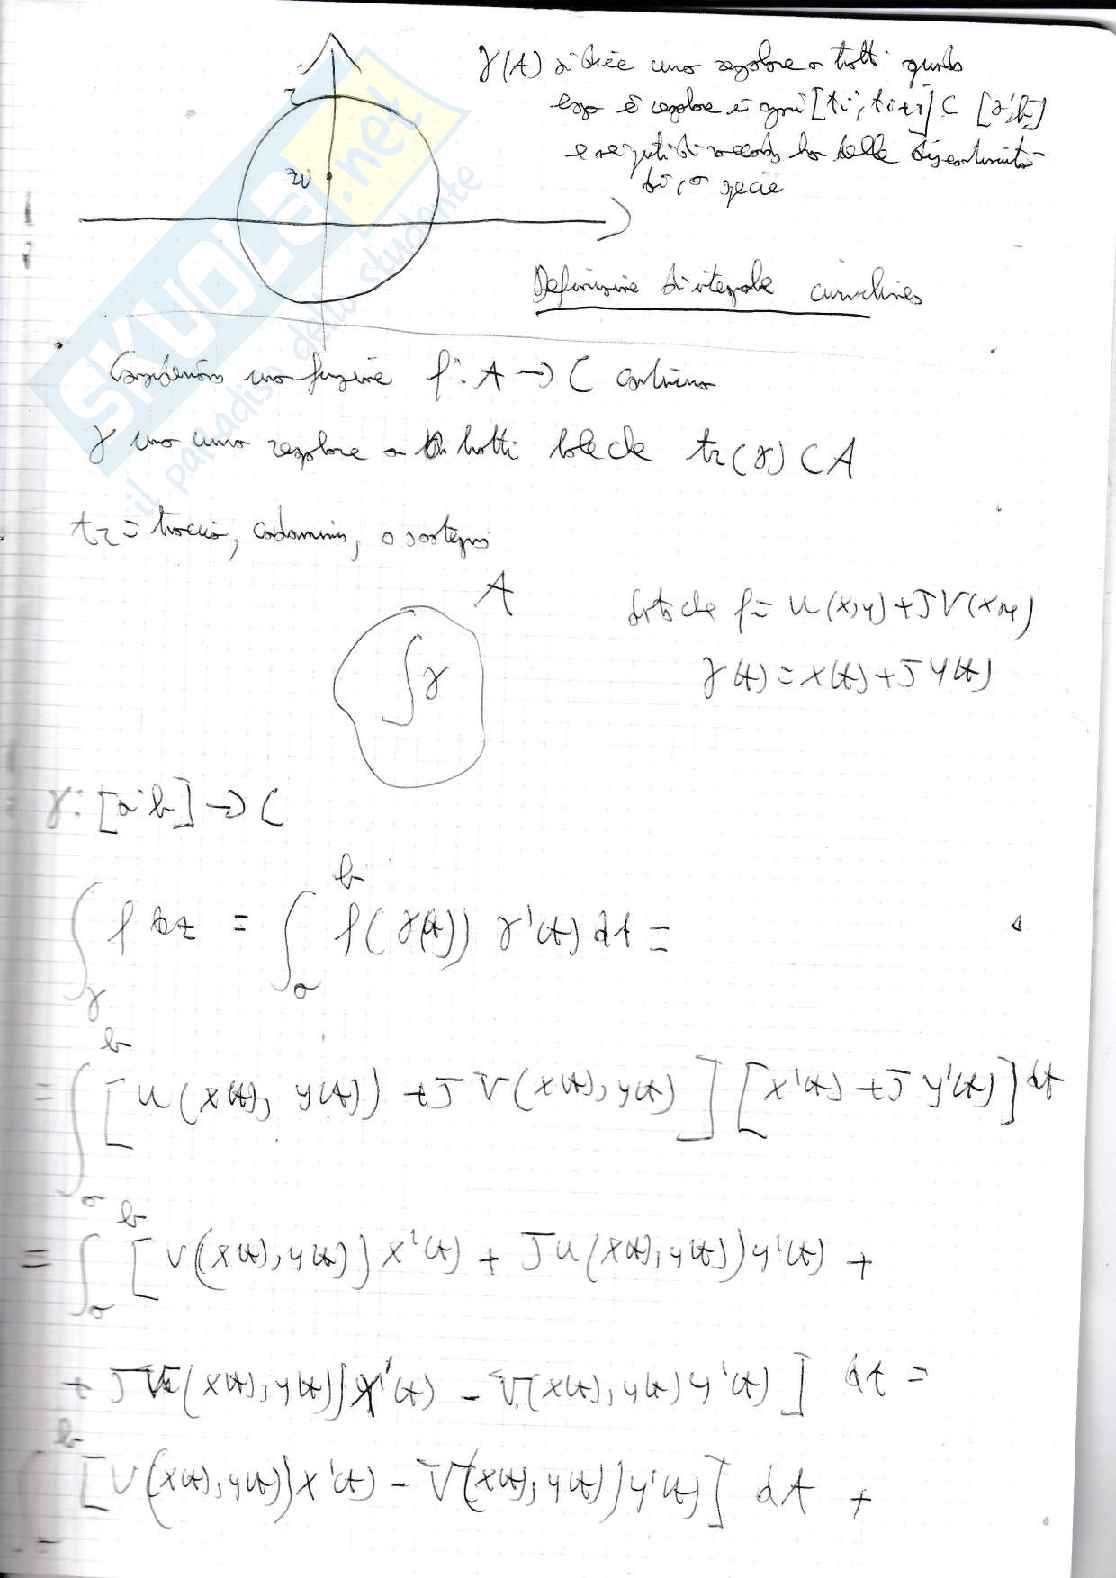 γ(A) si dice una regolare a tratti quando
esso è regolare in ogni [ti, ti+1] ⊂ [a, b]
e nei punti di raccordo ha delle discontinuità
di 1° specie
z
w
SKUOLA.net
il paradiso dello studente
Definizione di integrale curvilineo
Consideriamo una funzione f: A → C continua
γ una curva regolare a tratti tale che tr(γ) ⊂ A
tr = traccia, codominio, o sostegno
A
∫γ
dato che f = u(x,y) + J V(x,y)
γ(t) = x(t) + J y(t)
γ: [a, b] → C
∫γ f dz = ∫a^b f(γ(t)) γ'(t) dt =
= ∫a^b [u(x(t), y(t)) + J V(x(t), y(t)] [x'(t) + J y'(t)] dt
= ∫a^b [U(x(t), y(t)) x'(t) + J u(x(t), y(t)) y'(t) +
+ J V(x(t), y(t)) x'(t) - V(x(t), y(t) y'(t)] dt =
b
[U(x(t), y(t)) x'(t) - V(x(t), y(t)) y'(t)] dt +